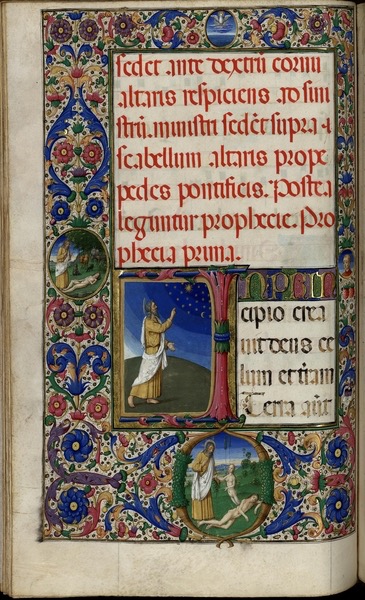 sedet ante dextrū cornu
altaris respiciens ad sini
strū. ministri sedēt supra
scabellum altaris prope
pedes pontificis. Postea
leguntur prophecie. Pro
phecia prima.
INPRIN
cipio crea
uit deus ce
lum et terram
Terra aūt